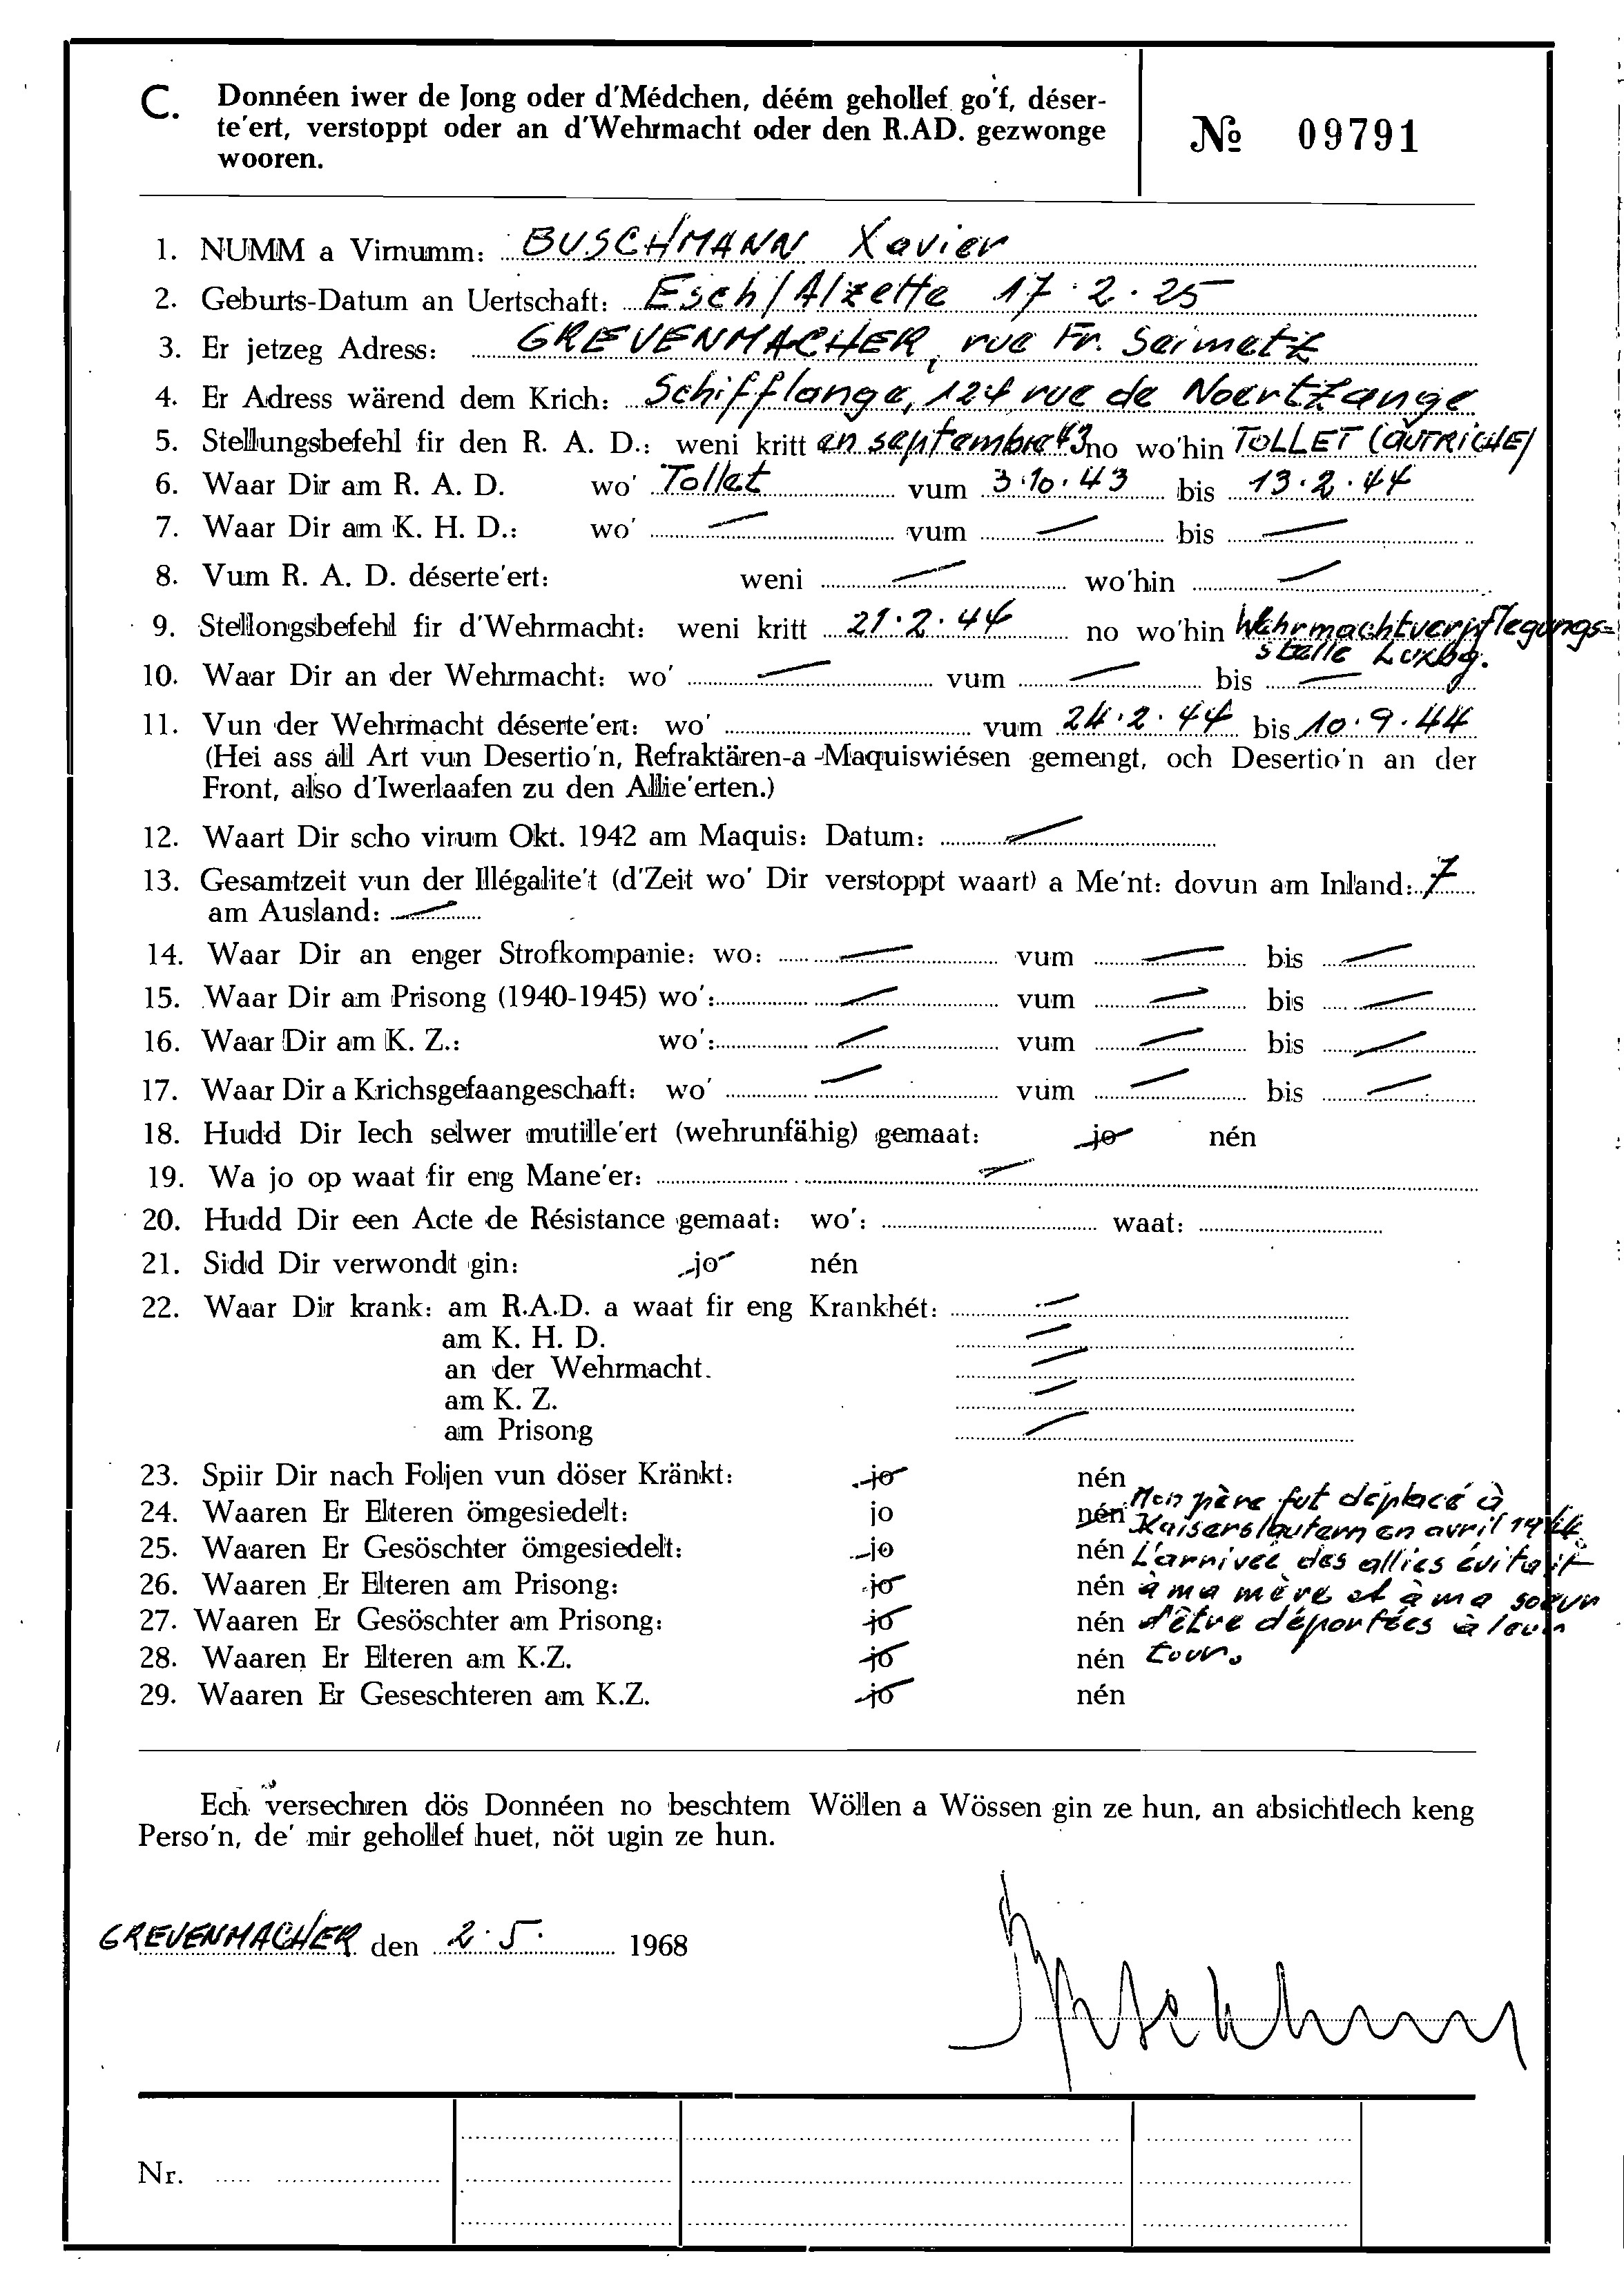 C. Donnéen iwer de Jong oder d'Médchen, déém gehollef go'f, déser-
te'ert, verstoppt oder an d'Wehrmacht oder den R.AD. gezwonge
wooren.
№ 09791
1. NUMM a Virnumm: BUSCHMANN Xavier
2. Geburts-Datum an Uertschaft: Esch/Alzette 17.2.25
3. Er jetzeg Adress: GREVENMACHER, rue Fr. Seimetz
4. Er Adress wärend dem Krich: Schifflange, 124 rue de Noertzange
5. Stellungsbefehl fir den R. A. D.: weni kritt en septembre 43 no wo'hin TOLLET (AUTRICHE)
6. Waar Dir am R. A. D. wo' Tollet vum 3.10.43 bis 13.2.44
7. Waar Dir am K. H. D.: wo' — vum — bis —
8. Vum R. A. D. déserte'ert: weni — wo'hin —
9. Stellongsbefehl fir d'Wehrmacht: weni kritt 21.2.44 no wo'hin Wehrmachtverpflegungs=
stelle Luxbg.
10. Waar Dir an der Wehrmacht: wo' — vum — bis —
11. Vun der Wehrmacht déserte'ert: wo' vum 24.2.44 bis 10.9.44
(Hei ass all Art vun Desertio'n, Refraktären-a-Maquiswiésen gemengt, och Desertio'n an der
Front, also d'Iwerlaafen zu den Allie'erten.)
12. Waart Dir scho virum Okt. 1942 am Maquis: Datum: —
13. Gesamtzeit vun der Illégalite't (d'Zeit wo' Dir verstoppt waart) a Me'nt: dovun am Inland: 7
am Ausland: —
14. Waar Dir an enger Strofkompanie: wo: — vum — bis —
15. Waar Dir am Prisong (1940-1945) wo': — vum — bis —
16. Waar Dir am K. Z.: wo': — vum — bis —
17. Waar Dir a Krichsgefaangeschaft: wo' — vum — bis —
18. Hudd Dir Iech selwer mutille'ert (wehrunfähig) gemaat: jo nén
19. Wa jo op waat fir eng Mane'er: —
20. Hudd Dir een Acte de Résistance gemaat: wo': waat:
21. Sidd Dir verwondt gin: jo nén
22. Waar Dir krank: am R.A.D. a waat fir eng Krankhét: —
am K. H. D. —
an der Wehrmacht. —
am K. Z. —
am Prisong —
23. Spiir Dir nach Foljen vun döser Kränkt: jo nén
24. Waaren Er Elteren ömgesiedelt: jo nén Mon père fut déplacé à
Kaiserslautern en avril 1944
25. Waaren Er Gesöschter ömgesiedelt: jo nén L'arrivée des alliés évitait
26. Waaren Er Elteren am Prisong: jo nén à ma mère et à ma soeur
27. Waaren Er Gesöschter am Prisong: jo nén d'être déportées à leur
28. Waaren Er Elteren am K.Z. jo nén tour.
29. Waaren Er Geseschteren am K.Z. jo nén
Ech versechren dös Donnéen no beschtem Wöllen a Wössen gin ze hun, an absichtlech keng
Perso'n, de' mir gehollef huet, nöt ugin ze hun.
GREVENMACHER den 2.5. 1968
Buschmann
Nr.